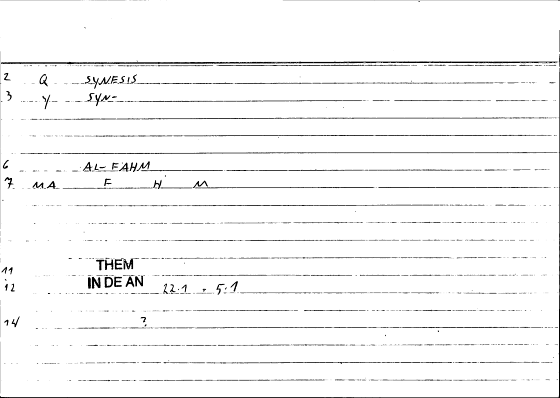 2 Q SYNESIS
3 Y SYN-
6 AL-FAHM
7 MA F H M
11 THEM
12 IN DE AN 22.1 - 5:1
14 ?